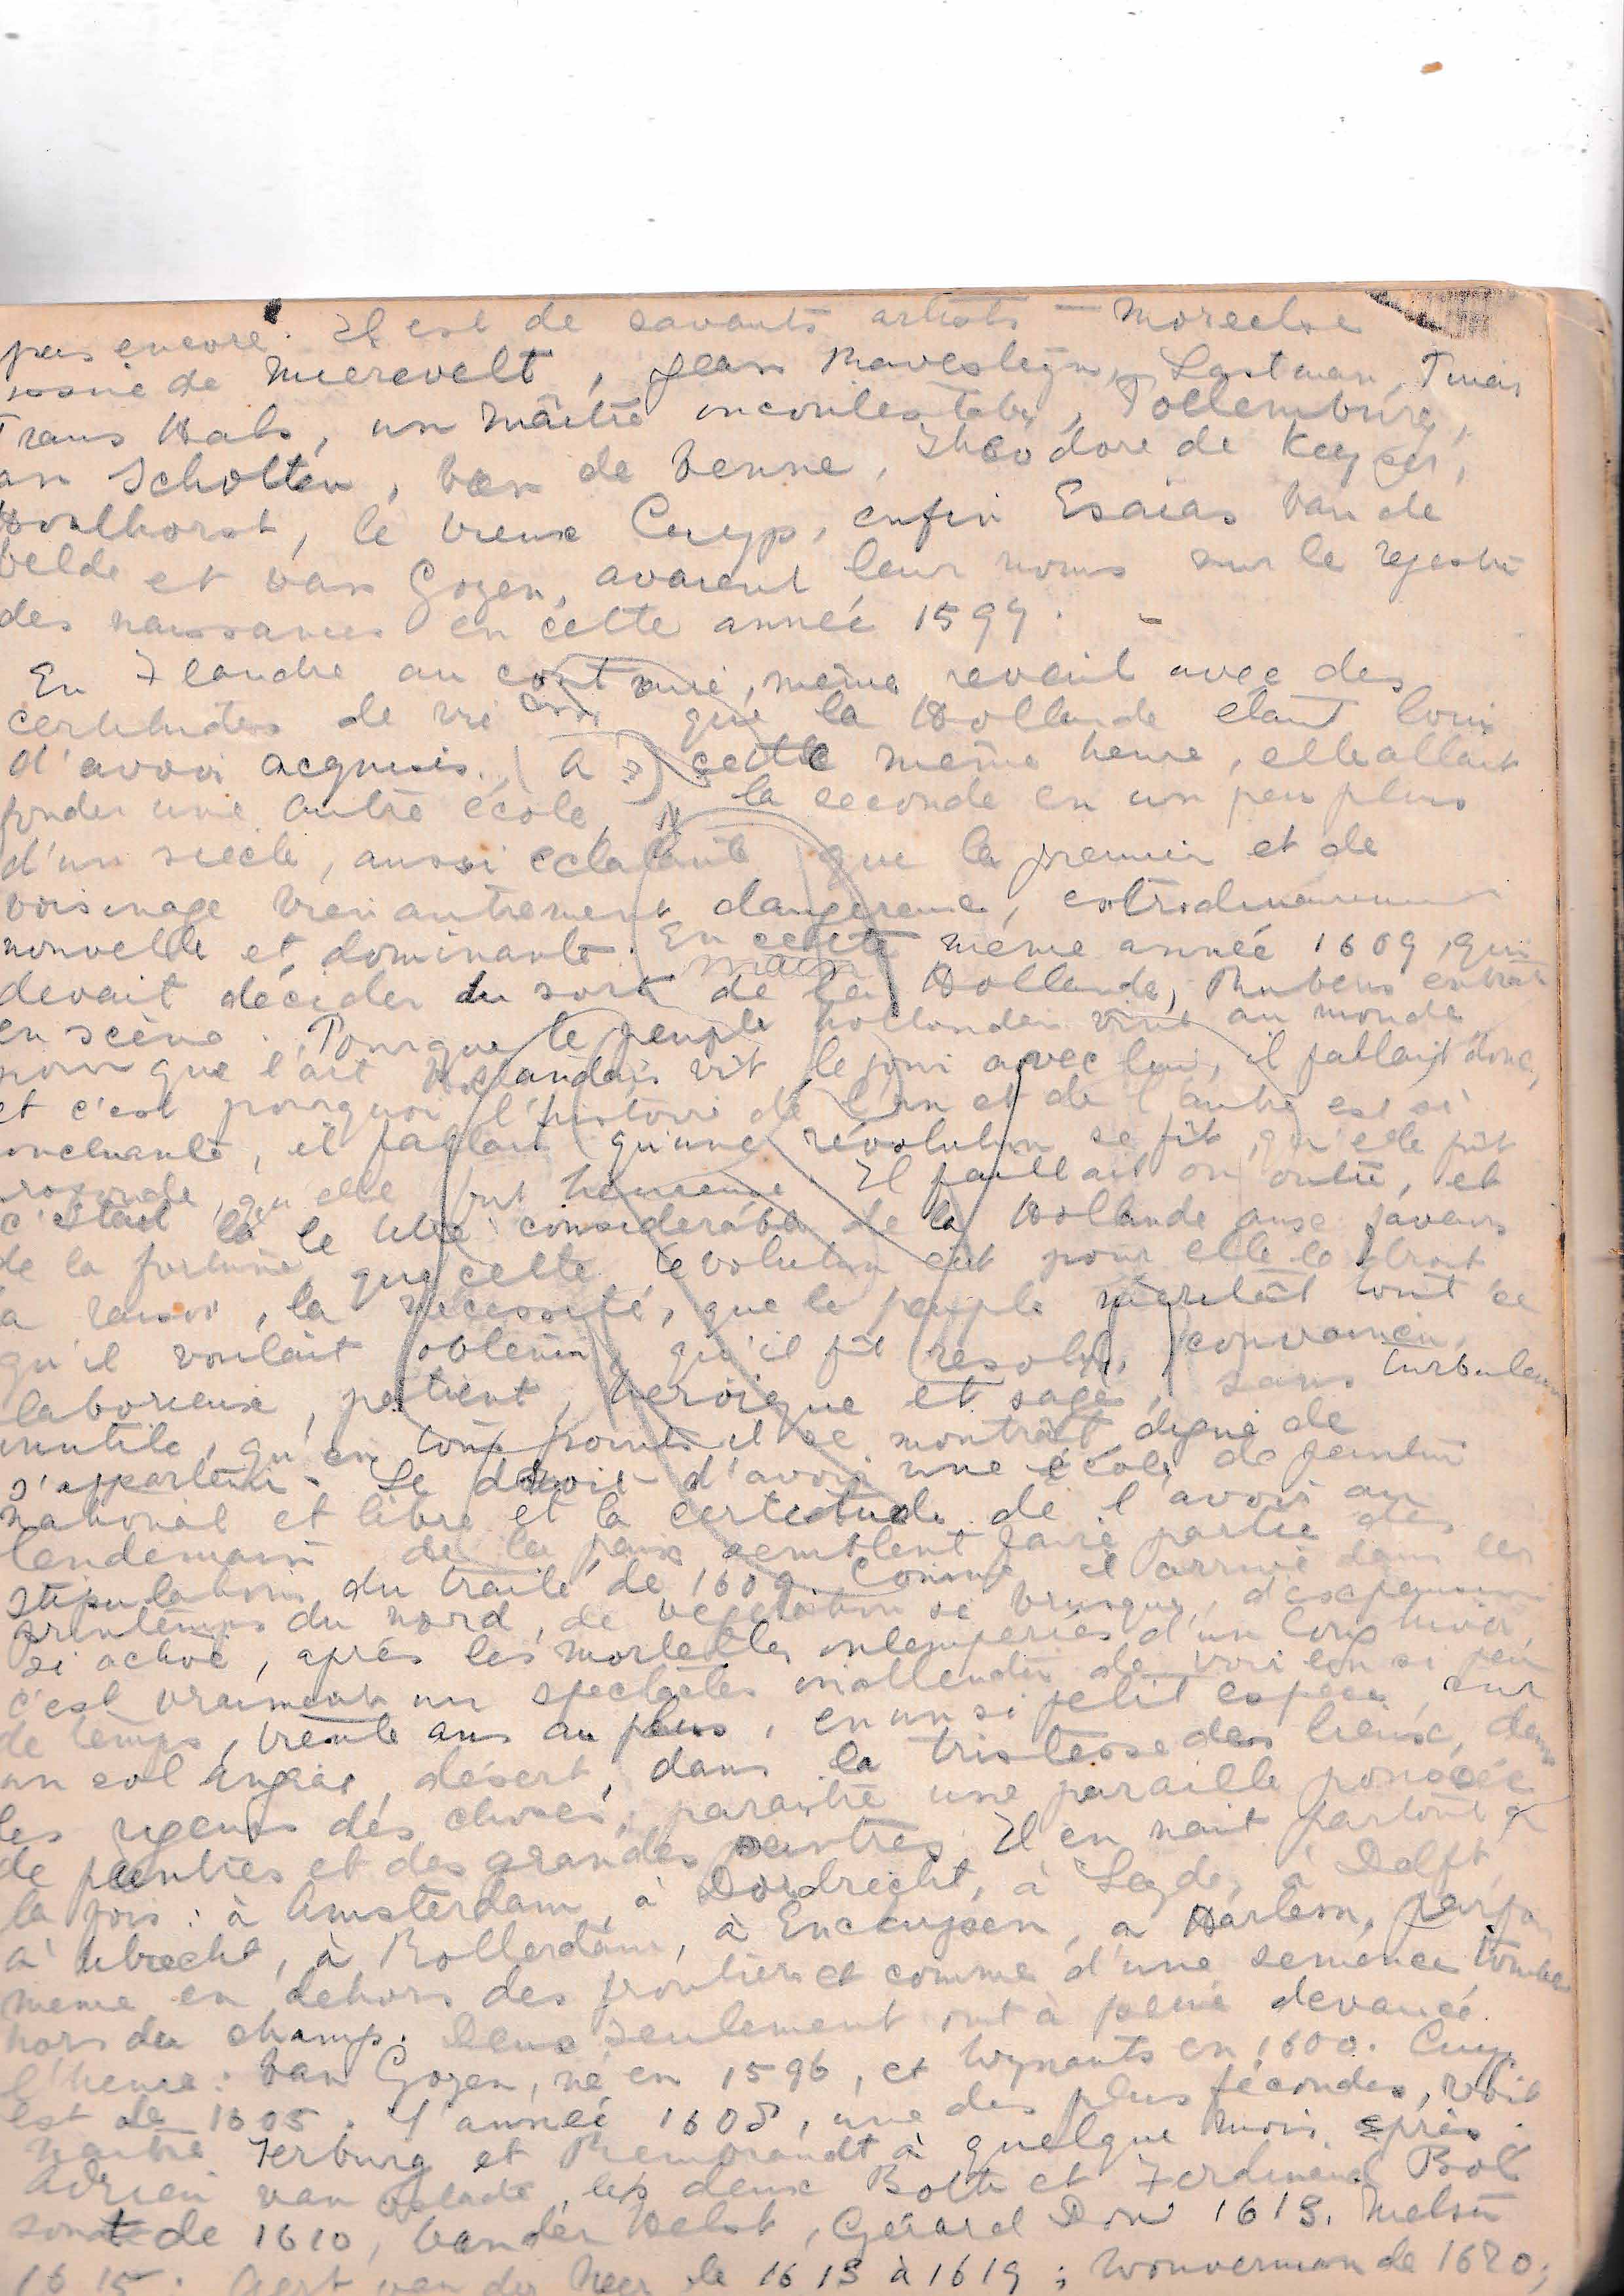 pas encore. Il est de savants artists – Morecelse
de Mierevelt, Jean Ravesteyn, Lastman, Pinas
Frans Hals, un maître incontestable, Pollemburg,
an Scholten, Van de Venne, Théodore de Keyser,
Honthorst, le vieux Cuyp, enfin Esaias Van de
Velde et van Goyen, avaient leur noms sur le régistre
des naissances en cette année 1599.
En Flandre au contraire, même reveil avec des
certitudes de vie que la Hollande étant loin
d'avoir acquises. ( A ?) cette même heure, elle allait
fonder une autre école, la seconde en un peu plus
d'un siècle, aussi éclatante que la premier et de
voisinage bien autrement dangereuse, extrordinairement
nouvelle et dominante. En cette même année 1609, qui
devait décider du sort de la Hollande, Rubens entrait
en scène. Pourque le peuple hollandais vint au monde
pour que l'art hollandais vit le jour avec lui, il fallait donc,
et c'est pourquoi l'histoire de l'un et de l'autre est si
oncluante, il fallait qu'une révolution se fît, qu'elle fût
rofonde, qu'elle fut heureuse. Il faillait on outre, et
c'était là le titre considerable de la Hollande aux faveurs
de la fortune, que cette revolution eût pour elle le droit
a raison, la nécessité, que le peuple méritât tout ce
qu'il voulait obtenir, qu'il fût resolu, convaincu,
laborieux, patient, heroique et sage, sans turbulence
inutile, qu'en tous points il se montrât digne de
s'appartenir. Le devoir d'avoir une école de peinture
national et libre et la certitude de l'avoir au
lendemain de la paix semblent faire partie des
stipulations du traité de 1609. Comme il arrive dans les
printemps du nord, de végétation si brusque, d'expansion
si active, après les mortelles intempéries d'un long hiver,
c'est vraiment un spectacles inattendu de voir en si peu
de temps, trente ans au plus, en un si petit espace, sur
un sol ingrat, désert, dans la tristesse des lieux, dans
les rigeurs des choses, paraître une paraille poussée
de peintres et des grandes peintres. Il en nait partout à
la fois : à Amsterdam, à Dordrecht, à Leyde, à Delft,
à Utrecht, à Rotterdam, à Enckuysen, a Harlem, parfo
meme en dehors des frontiers et comme d'une semence tombée
hors du champ. Deux seulement ont à peine devancé
l'heure : Van Goyen, né en 1596, et Wynants en 1600. Cuyp
est de 1605. L'année 1608, une des plus fécondes, voit
naître Terburg et Rembrandt à quelque mois après.
Adrien van Ostade, les deux Both et Ferdinand Bol
sont de 1610, Van der Helst, Gérard Dou 1613. Metsu
1615. Aert van der Neer de 1613 à 1619 ; Wouverman de 1620;